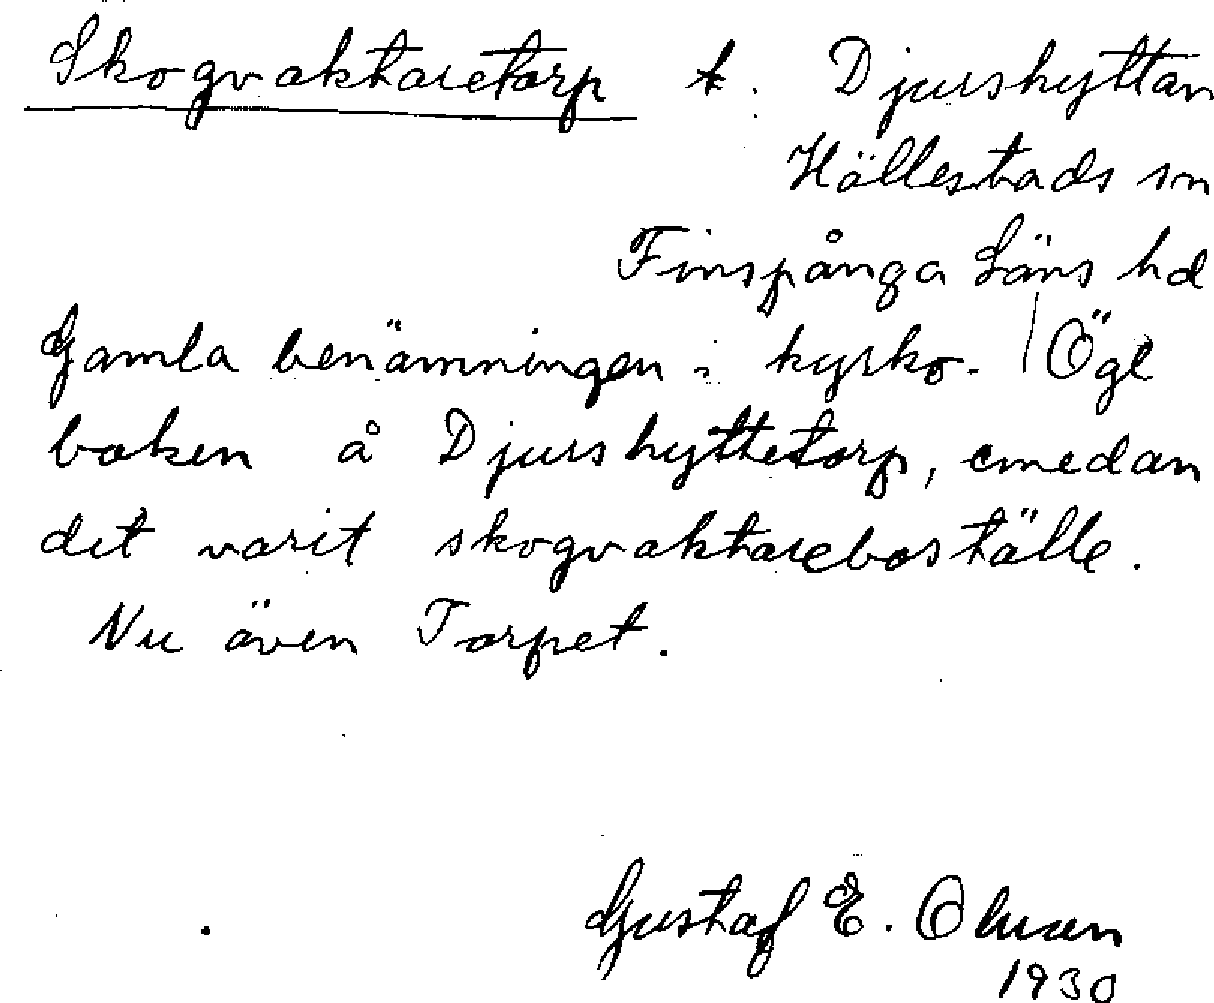 Skogvaktaretorp t. Djurshyttan
Hällestads sn
Finspånga Läns hd
Gamla benämningen i kyrko- Ögl
boken å Djurshyttetorp, emedan
det varit skogvaktareboställe.
Nu även Torpet.
Gustaf E.
1930